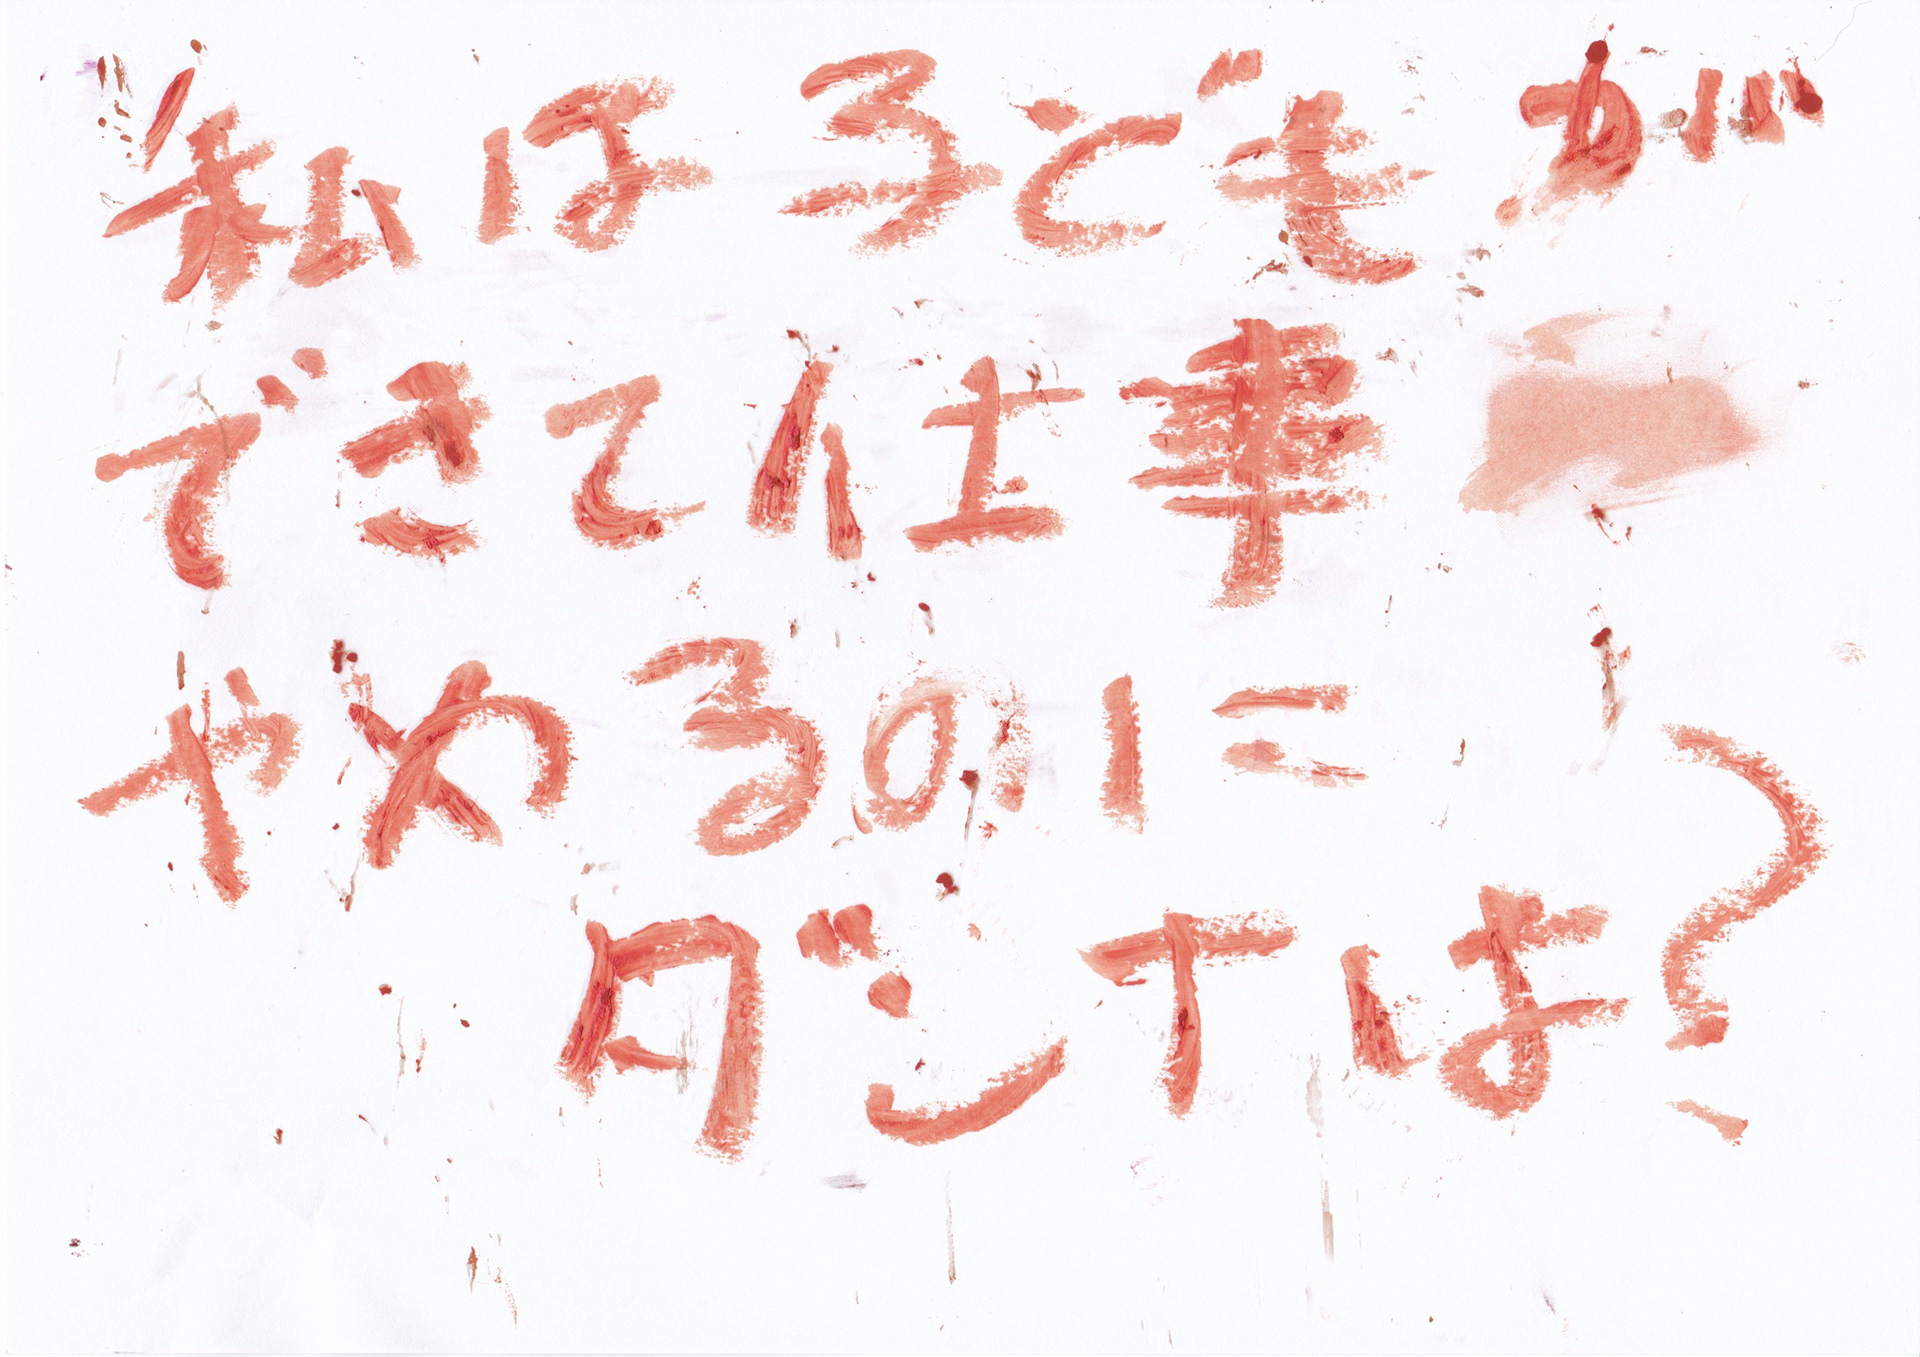 私は子どもが
できて仕事
やめるのに
ダンナは?